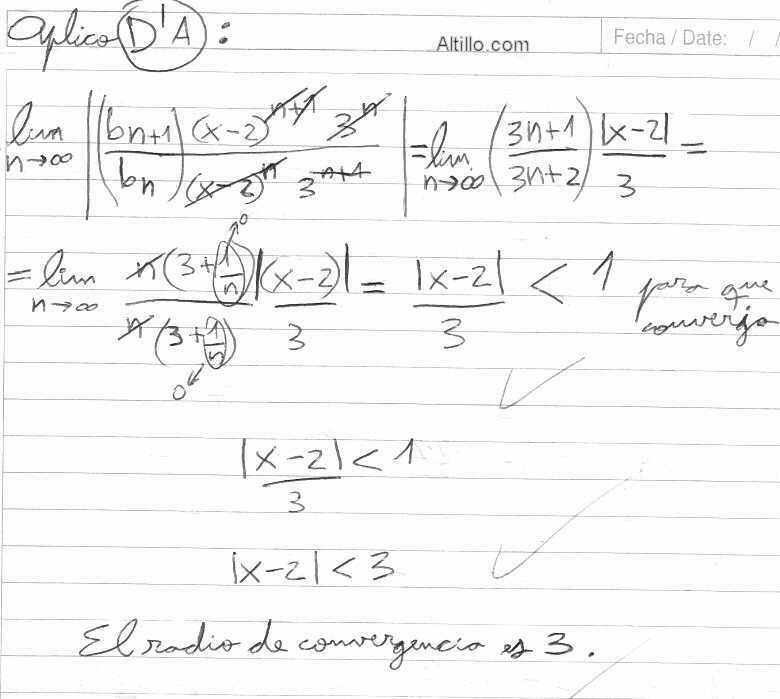 Aplico D'A :
Altillo.com
Fecha / Date: / /
lim n→∞ |(bn+1 / bn) (x-2)^n+1 3^n / (x-2)^n 3^n+1| = lim n→∞ (3n+1 / 3n+2) |x-2| / 3 =
= lim n→∞ n(3+1/n) / n(3+1/n) |(x-2)| / 3 = |x-2| / 3 < 1 para que converja
0
0
|x-2| / 3 < 1
|x-2| < 3
El radio de convergencia es 3.